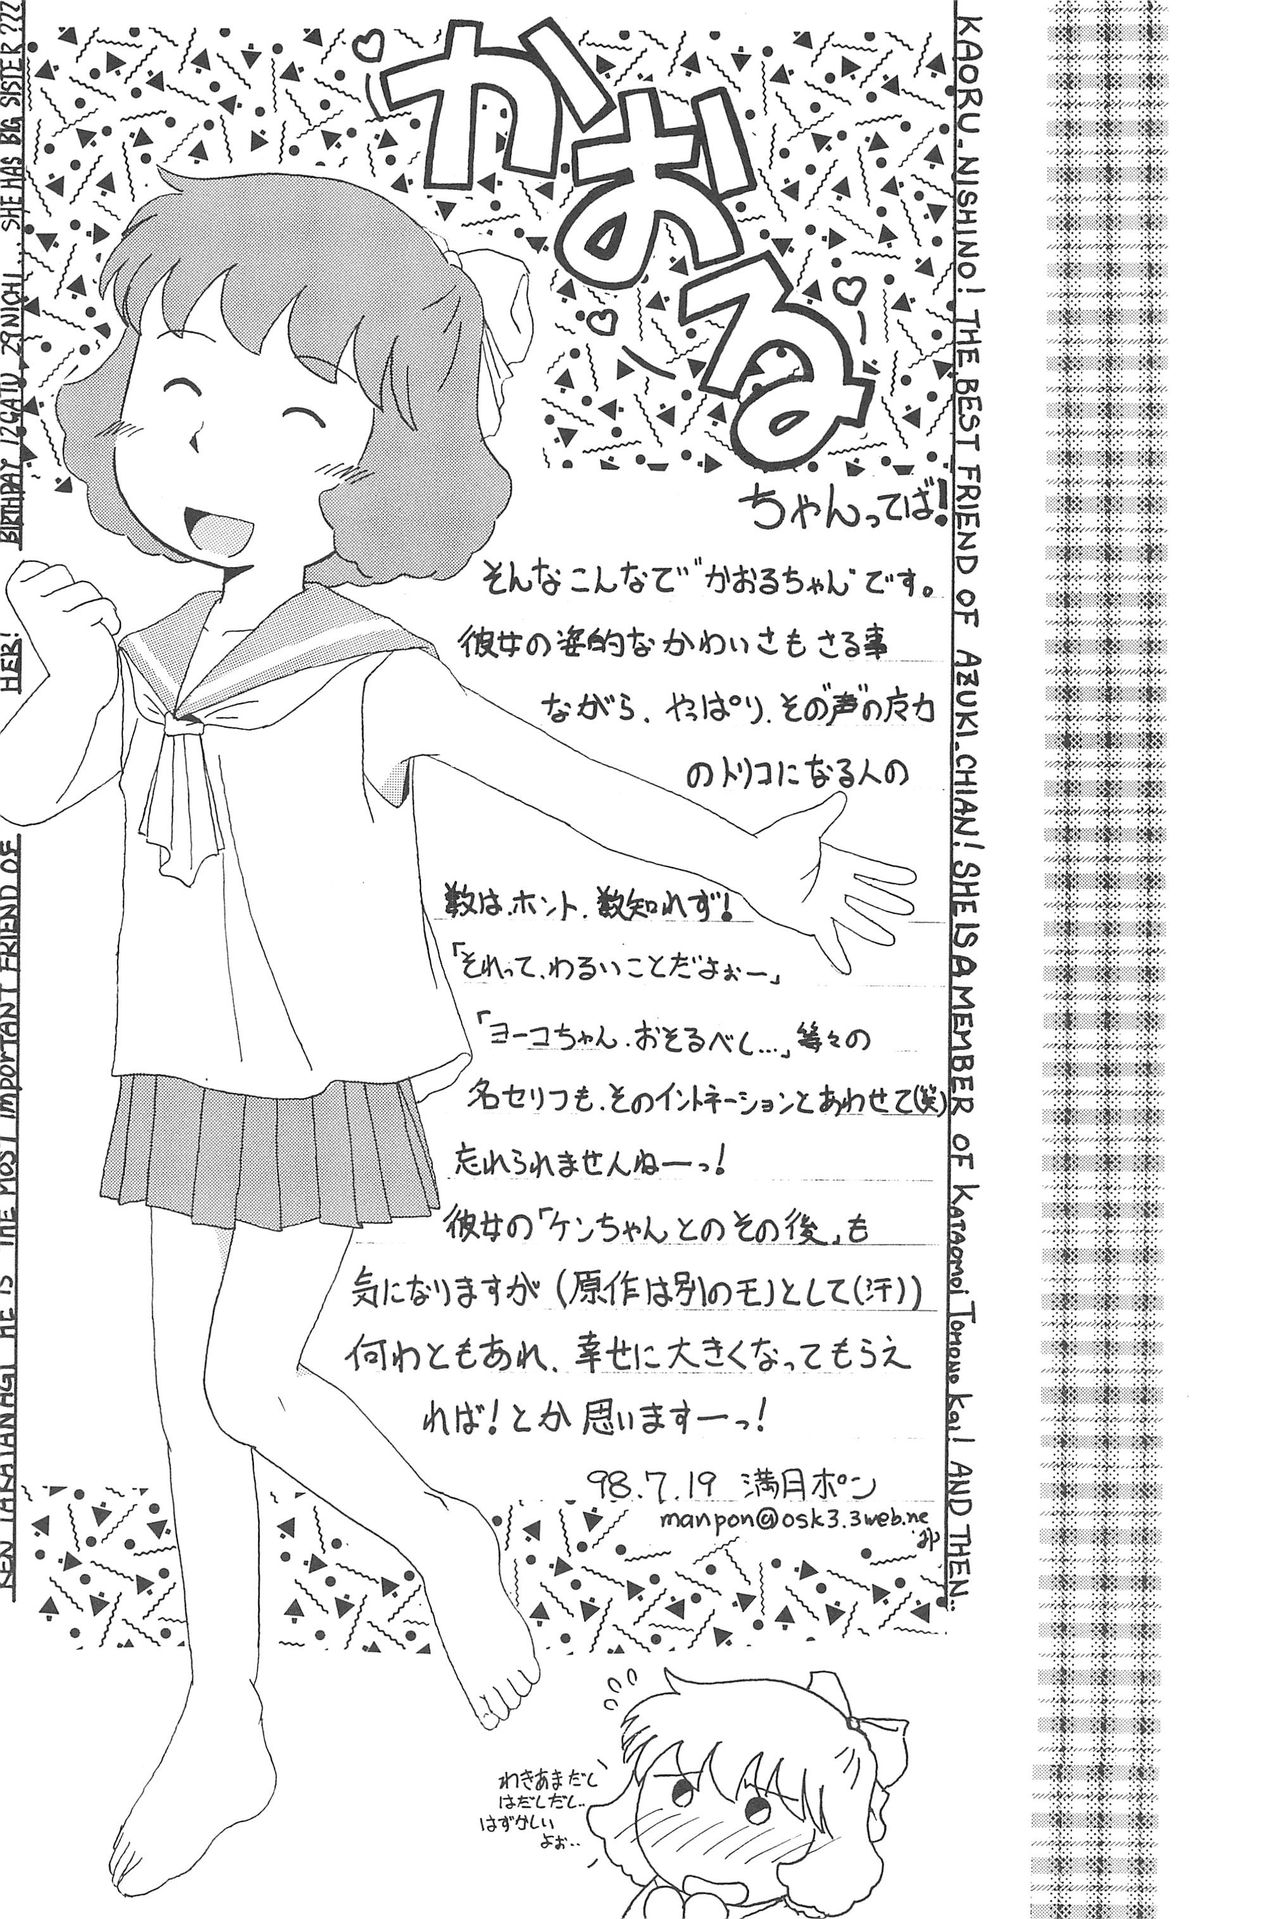 かおる
ちゃんってば!
そんなこんなで"かおるちゃん"です。
彼女の姿的なかわいさもさる事
ながら、やっぱり、その"声"の魔力
のトリコになる人の
数は、ホント、数知れず!
「それって、わるいことだよぉー」
「ヨーコちゃん、おそるべし…」等々の
名セリフも、そのイントネーションとあわせて(笑)
忘れられませんねーっ!
彼女の「ケンちゃんとのその後」も
気になりますが(原作は別のモノとして(汗))
何わともあれ、幸せに大きくなってもらえ
れば!とか思いますーっ!
98.7.19 満月ポン
manpon@osk3.3web.ne
.jp
わきあまだし
はだしだし..
はずかしい
よぉ..
KAORU_NISHINO! THE BEST FRIEND OF AZUKI_CHIAN! SHE IS A MEMBER OF KATAOMOI TOMONO KAI! AND THEN..
KEN TAKAYANAGI HE IS THE MOST IMPORTANT FRIEND OF HER! BIRTHDAY 12GATU_29NICHI... SHE HAS BIG SISTER???